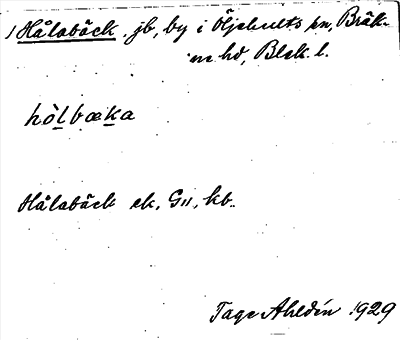 1 Hålabäck, jb, by i Öljehults sn, Bräk-
ne hd, Blek. l.
hòlbœka
Hålabäck ek, G11, kb.
Tage Ahldén 1929